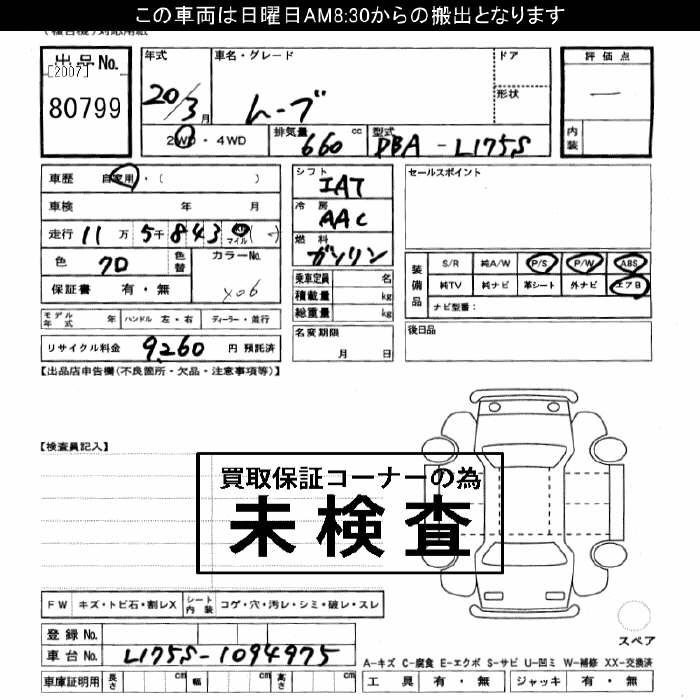 この車両は日曜日AM8:30からの搬出となります
出品No.
[2007]
80799
年式
20/3月
車名・グレード
ムーブ
ドア
形状
評価点
内装
2WD・4WD
排気量
660 cc
型式
DBA-L175S
車歴 自家用・( )
車検 年 月
走行 11万5千843 マイル
色 クロ
色替
カラーNo.
X06
保証書 有・無
シフト
IAT
冷房
AAC
燃料
ガソリン
乗車定員 名
積載量 kg
総重量 kg
セールスポイント
装備品
S/R 純A/W P/S P/W ABS
純TV 純ナビ 革シート 外ナビ エアB
ナビ型番:
モデル年式 年 ハンドル 左・右 ディーラー・並行
名変期限
月 日
後日品
リサイクル料金 9,260 円 預託済
【出品店申告欄(不良箇所・欠品・注意事項等)】
【検査員記入】
買取保証コーナーの為
未検査
FW キズ・トビ石・割レX シート内装 コゲ・穴・汚レ・シミ・破レ・スレ
登録No.
車台No. L175S-1094975
車庫証明用 長さ cm 幅 cm 高さ cm
スペア
A-キズ C-腐食 E-エクボ S-サビ U-凹ミ W-補修 XX-交換済
工具 有・無 ジャッキ 有・無